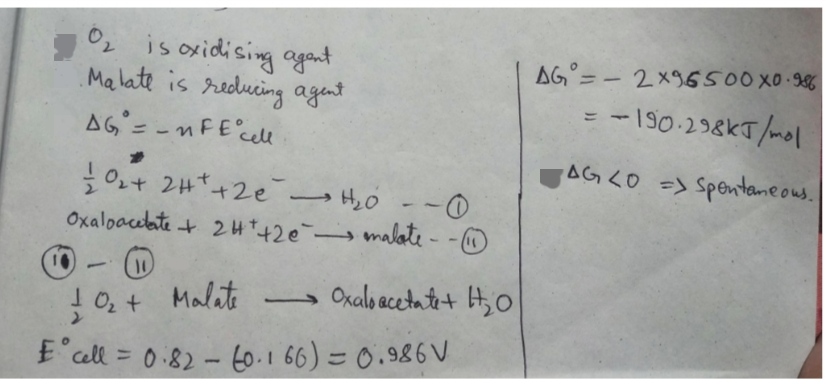 O₂ is oxidising agent
Malate is reducing agent
ΔG° = - nFE°cell
½ O₂ + 2H⁺ + 2e⁻ ⟶ H₂O - - (I)
Oxaloacetate + 2H⁺ + 2e⁻ ⟶ malate - - (II)
(I) - (II)
½ O₂ + Malate ⟶ Oxaloacetate + H₂O
E°cell = 0.82 - (-0.166) = 0.986V
ΔG° = - 2×96500×0.986
= -190.298kJ/mol
ΔG<0 => Spontaneous.